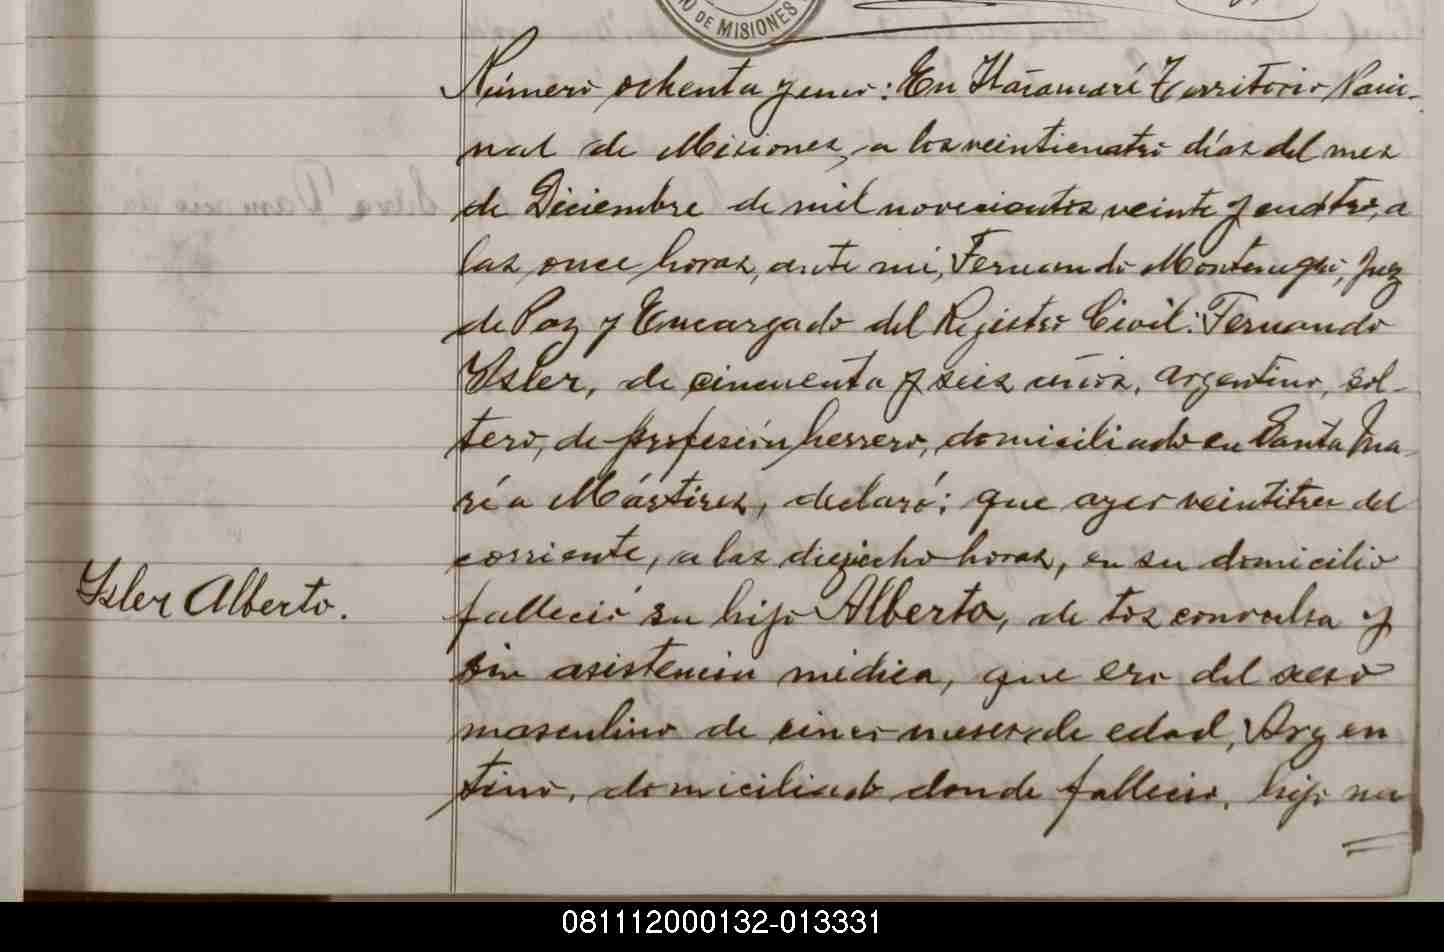 DE MISIONES
Número ochenta y uno: En Itacaruaré Territorio Nacio-
nal de Misiones, a los veinticuatro días del mes
de Diciembre de mil novecientos veinte y cuatro, a
las once horas, ante mi, Fernando Montenegro, Juez
de Paz y Encargado del Registro Civil: Fernando
Ysler, de cincuenta y seis años, argentino, sol-
tero, de profesión herrero, domiciliado en Santa Ma-
ría Mártires, declaró: que ayer veintitres del
corriente, a las dieziocho horas, en su domicilio
Ysler Alberto.
falleció su hijo Alberto, de tos convulsa y
sin asistencia médica, que era del sexo
masculino de cinco meses de edad, Argen
tino, domiciliado donde fallecio, hijo na
081112000132-013331